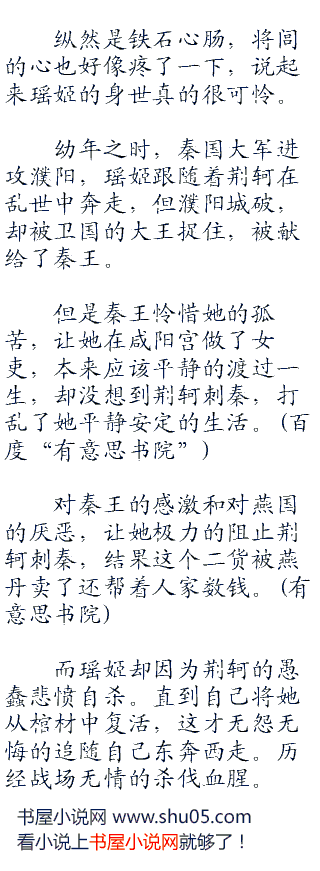 纵然是铁石心肠，将闾
的心也好像疼了一下，说起
来瑶姬的身世真的很可怜。
幼年之时，秦国大军进
攻濮阳，瑶姬跟随着荆轲在
乱世中奔走，但濮阳城破，
却被卫国的大王捉住，被献
给了秦王。
但是秦王怜惜她的孤
苦，让她在咸阳宫做了女
吏，本来应该平静的渡过一
生，却没想到荆轲刺秦，打
乱了她平静安定的生活。(百
度“有意思书院”)
对秦王的感激和对燕国
的厌恶，让她极力的阻止荆
轲刺秦，结果这个二货被燕
丹卖了还帮着人家数钱。(有
意思书院)
而瑶姬却因为荆轲的愚
蠢悲愤自杀。直到自己将她
从棺材中复活，这才无怨无
悔的追随自己东奔西走。历
经战场无情的杀伐血腥。
书屋小说网 www.shu05.com
看小说上书屋小说网就够了！